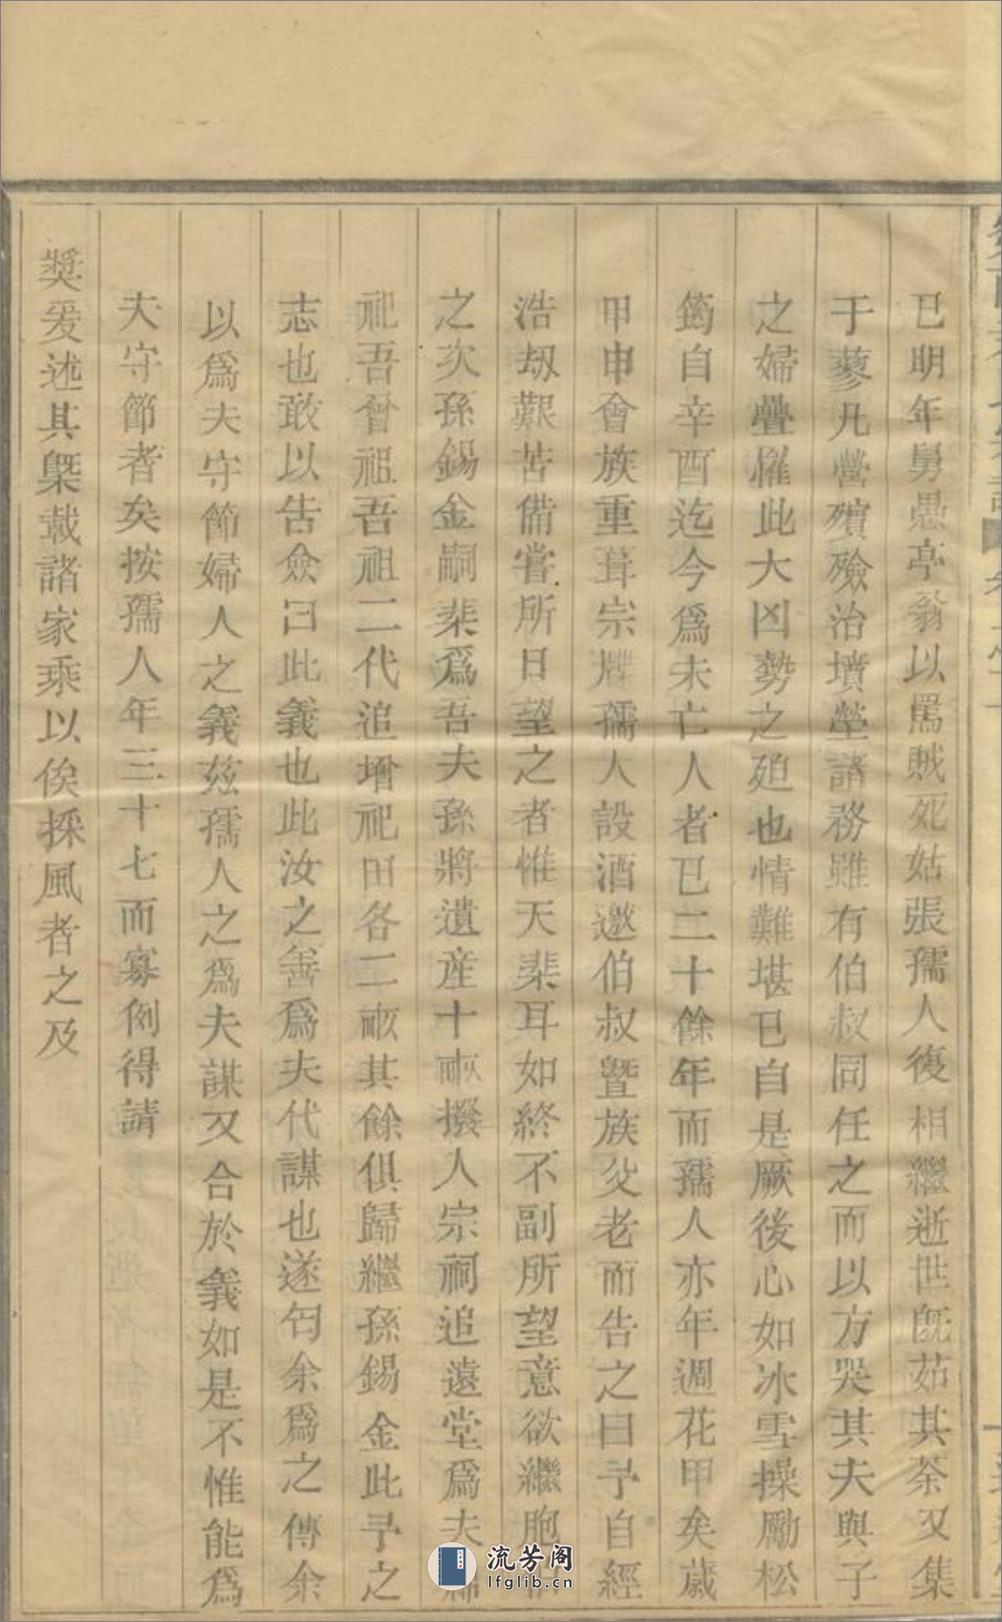 已明年舅愚亭翁以罵賊死姑張孺人復相繼逝世旣茹其荼又集
于蓼凡營殯殮治墳塋諸務雖有伯叔同任之而以方哭其夫與子
之婦疊罹此大凶勢之廹也情難堪已自是厥後心如冰雪操勵松
筠自辛酉迄今爲未亡人者已二十餘年而孺人亦年週花甲矣歲
甲申會族重葺宗牒孺人設酒邀伯叔暨族父老而告之曰予自經
浩刼艱苦備嘗所日望之者惟天棐耳如終不副所望意欲繼胞
之次孫錫金嗣棐爲吾夫孫將遺産十畝撥人宗祠追遠堂爲夫
祀吾曾祖吾祖二代追增祀田各二畝其餘俱歸繼孫錫金此予之
志也敢以告僉曰此義也此汝之善爲夫代謀也遂匄余爲之傳余
以爲夫守節婦人之義茲孺人之爲夫謀又合於義如是不惟能爲
夫守節者矣按孺人年三十七而寡例得請
奬爰述其槩載諸家乘以俟採風者之及
流芳阁
lfglib.cn